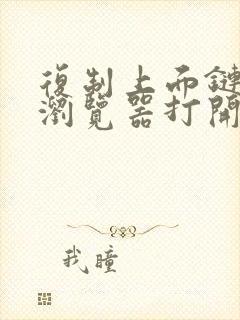 復制上面鏈
瀏覽器打開
我瞳